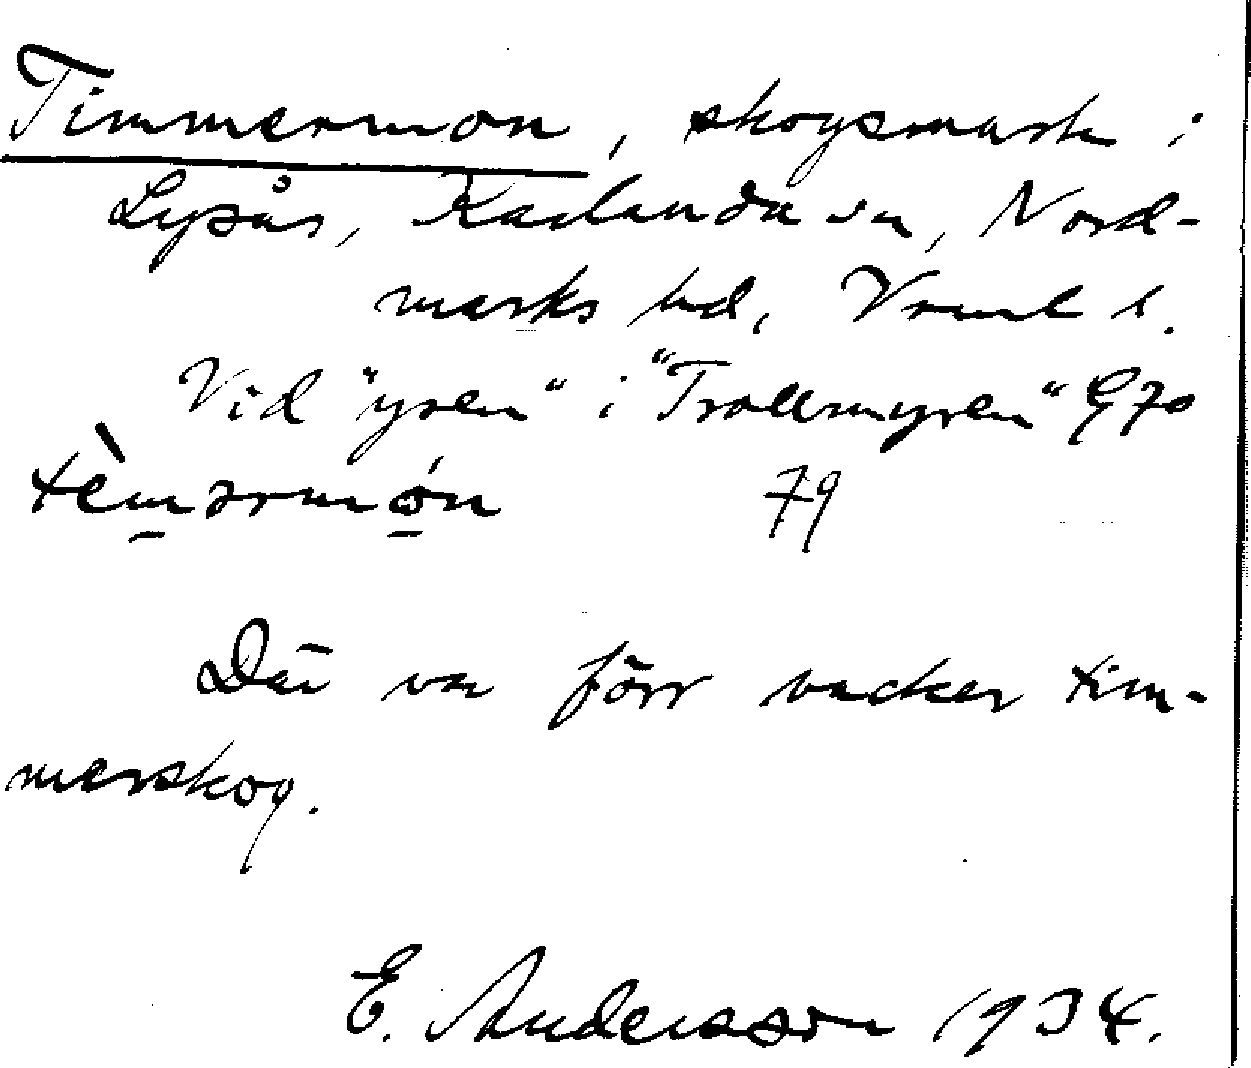 Timmermon, skogsmark i
Lysås, Karlanda sn, Nord-
marks hd, Vrml l.
Vid "yren" i "Trollmyren" G70
tèmərmón 79
Där va förr vacker tim-
merskog.
E. Andersson 1934.